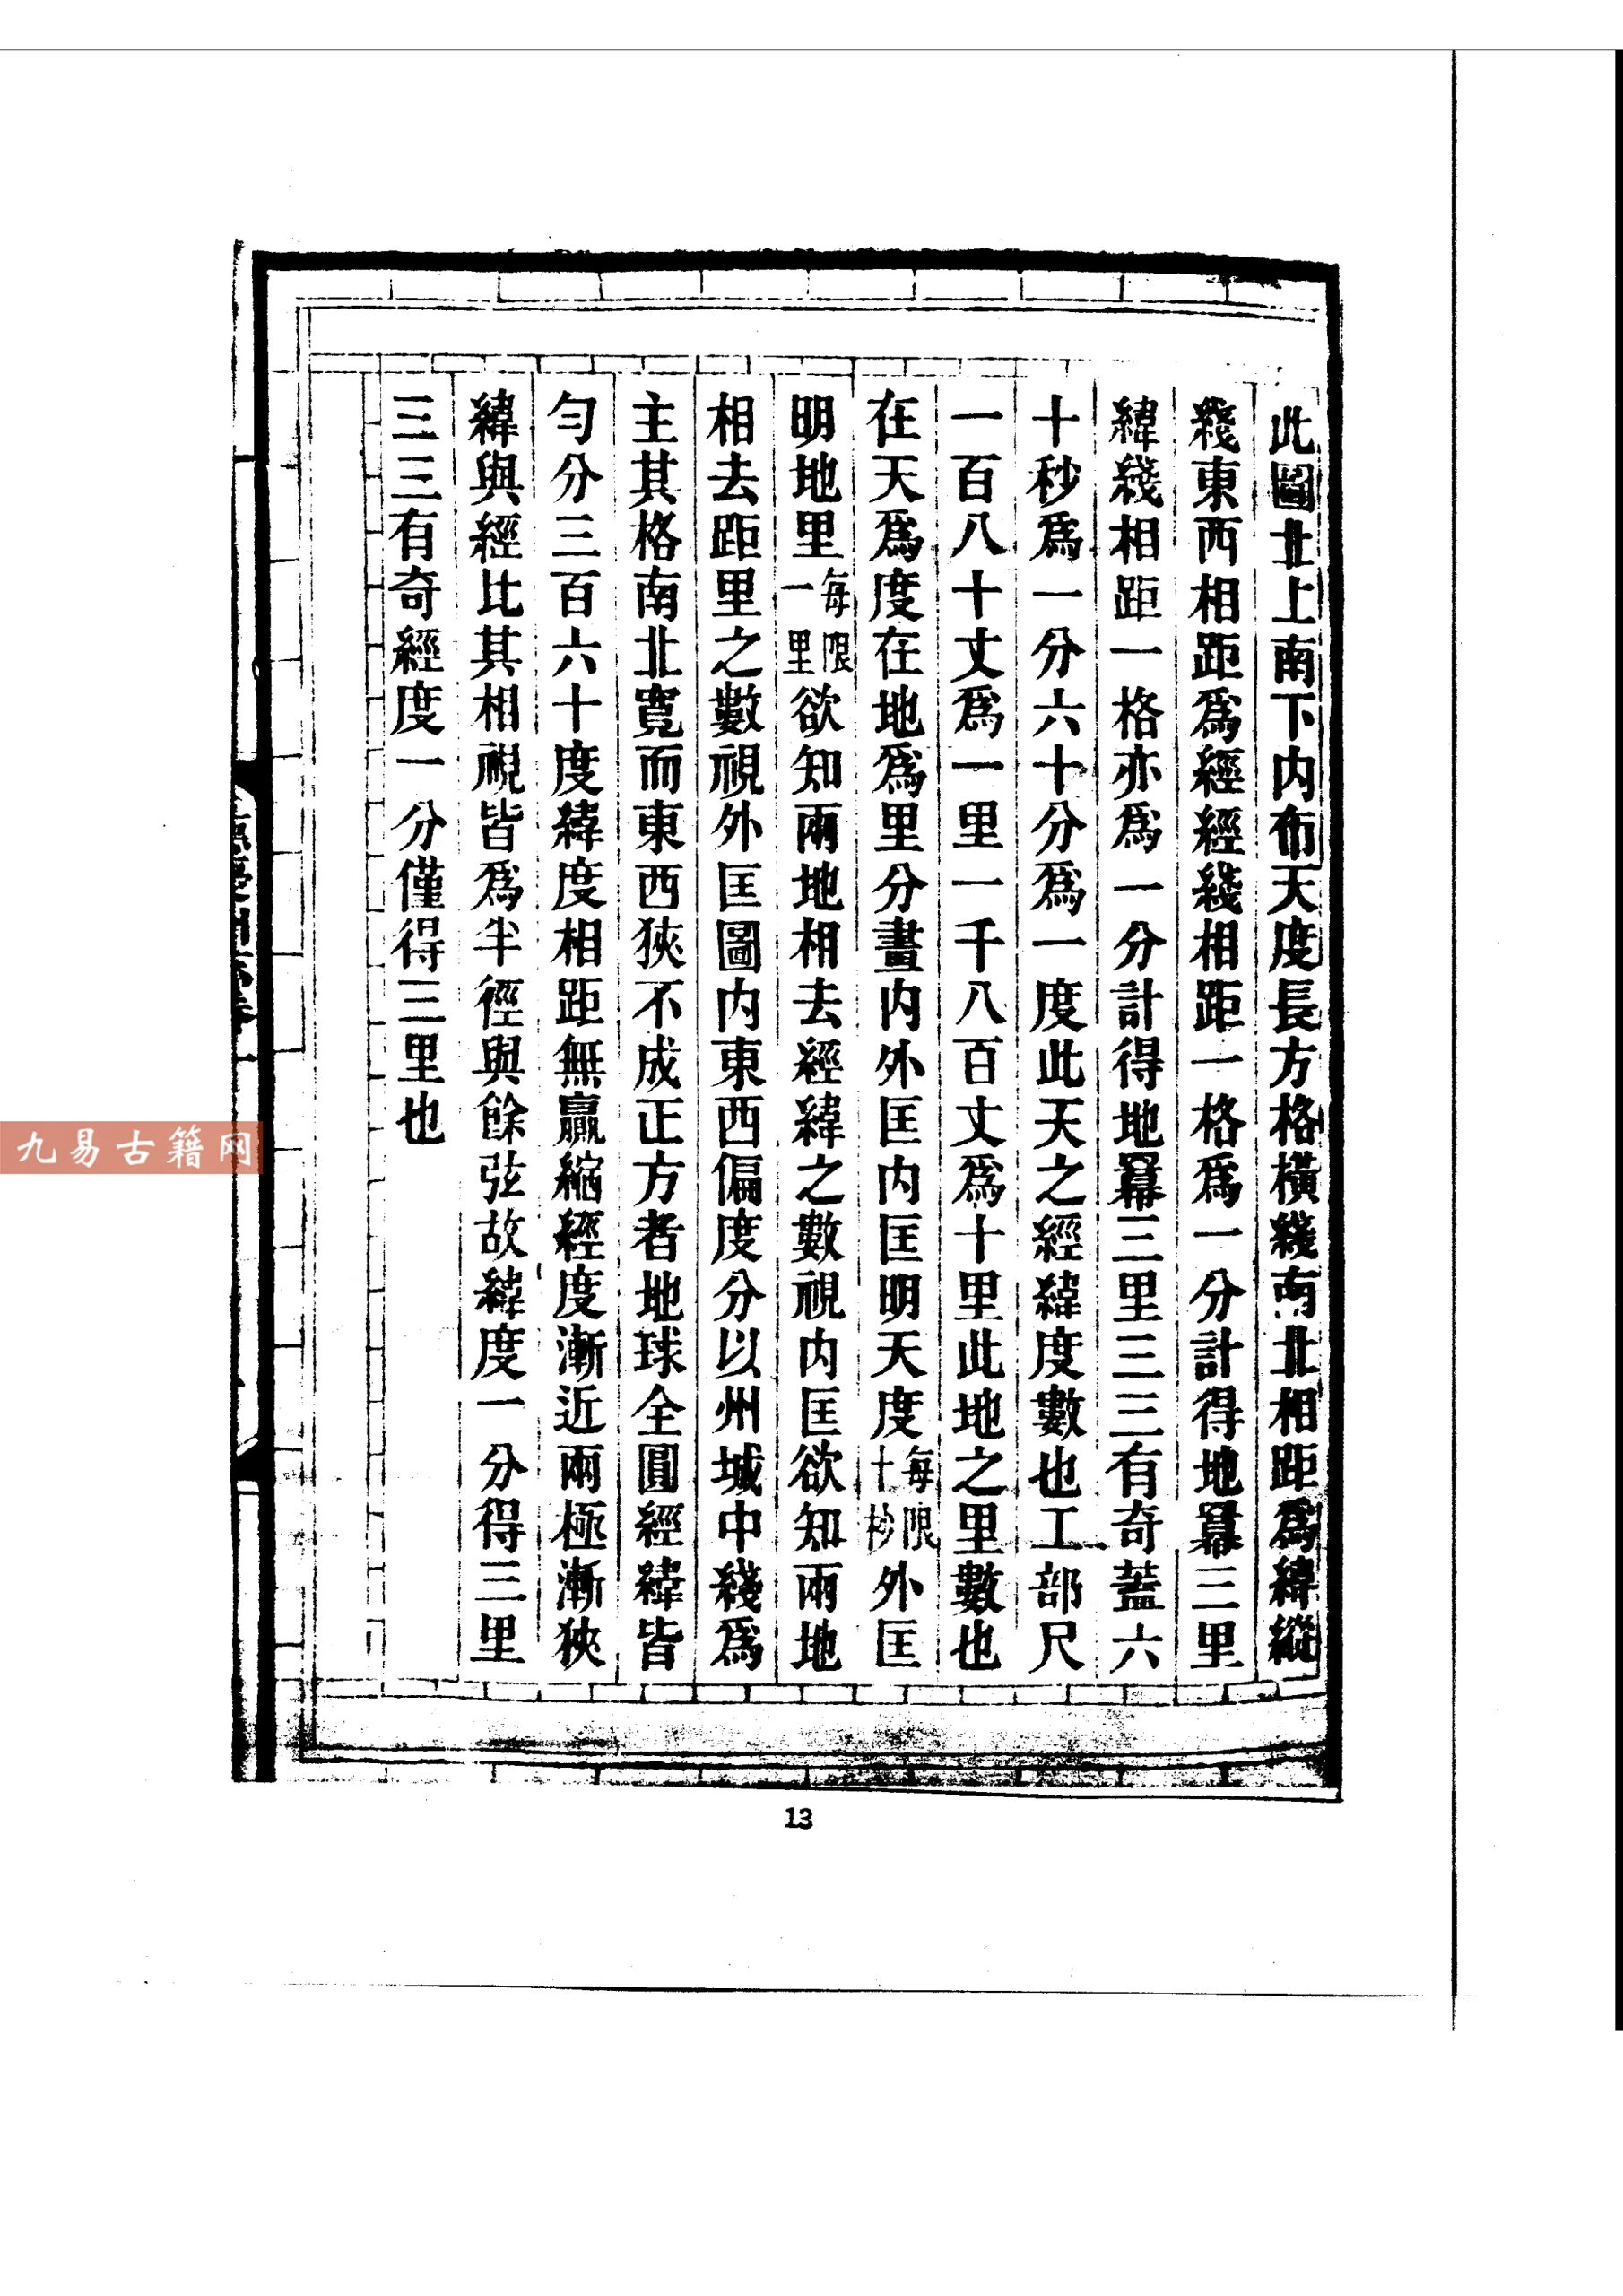 此圖北上南下内布天度長方格橫綫南北相距爲緯縱
綫東西相距爲經經綫相距一格爲一分計得地冪三里
緯綫相距一格亦爲一分計得地冪三里三三有奇蓋六
十秒爲一分六十分爲一度此天之經緯度數也工部尺
一百八十丈爲一里一千八百丈爲十里此地之里數也
在天爲度在地爲里分畫内外匡内匡明天度每限十秒外匡
明地里每限一里欲知兩地相去經緯之數視内匡欲知兩地
相去距里之數視外匡圖内東西偏度分以州城中綫爲
主其格南北寬而東西狹不成正方者地球全圓經緯皆
勻分三百六十度緯度相距無贏縮經度漸近兩極漸狹
緯與經比其相視皆爲半徑與餘弦故緯度一分得三里
三三有奇經度一分僅得三里也
13
九易古籍网